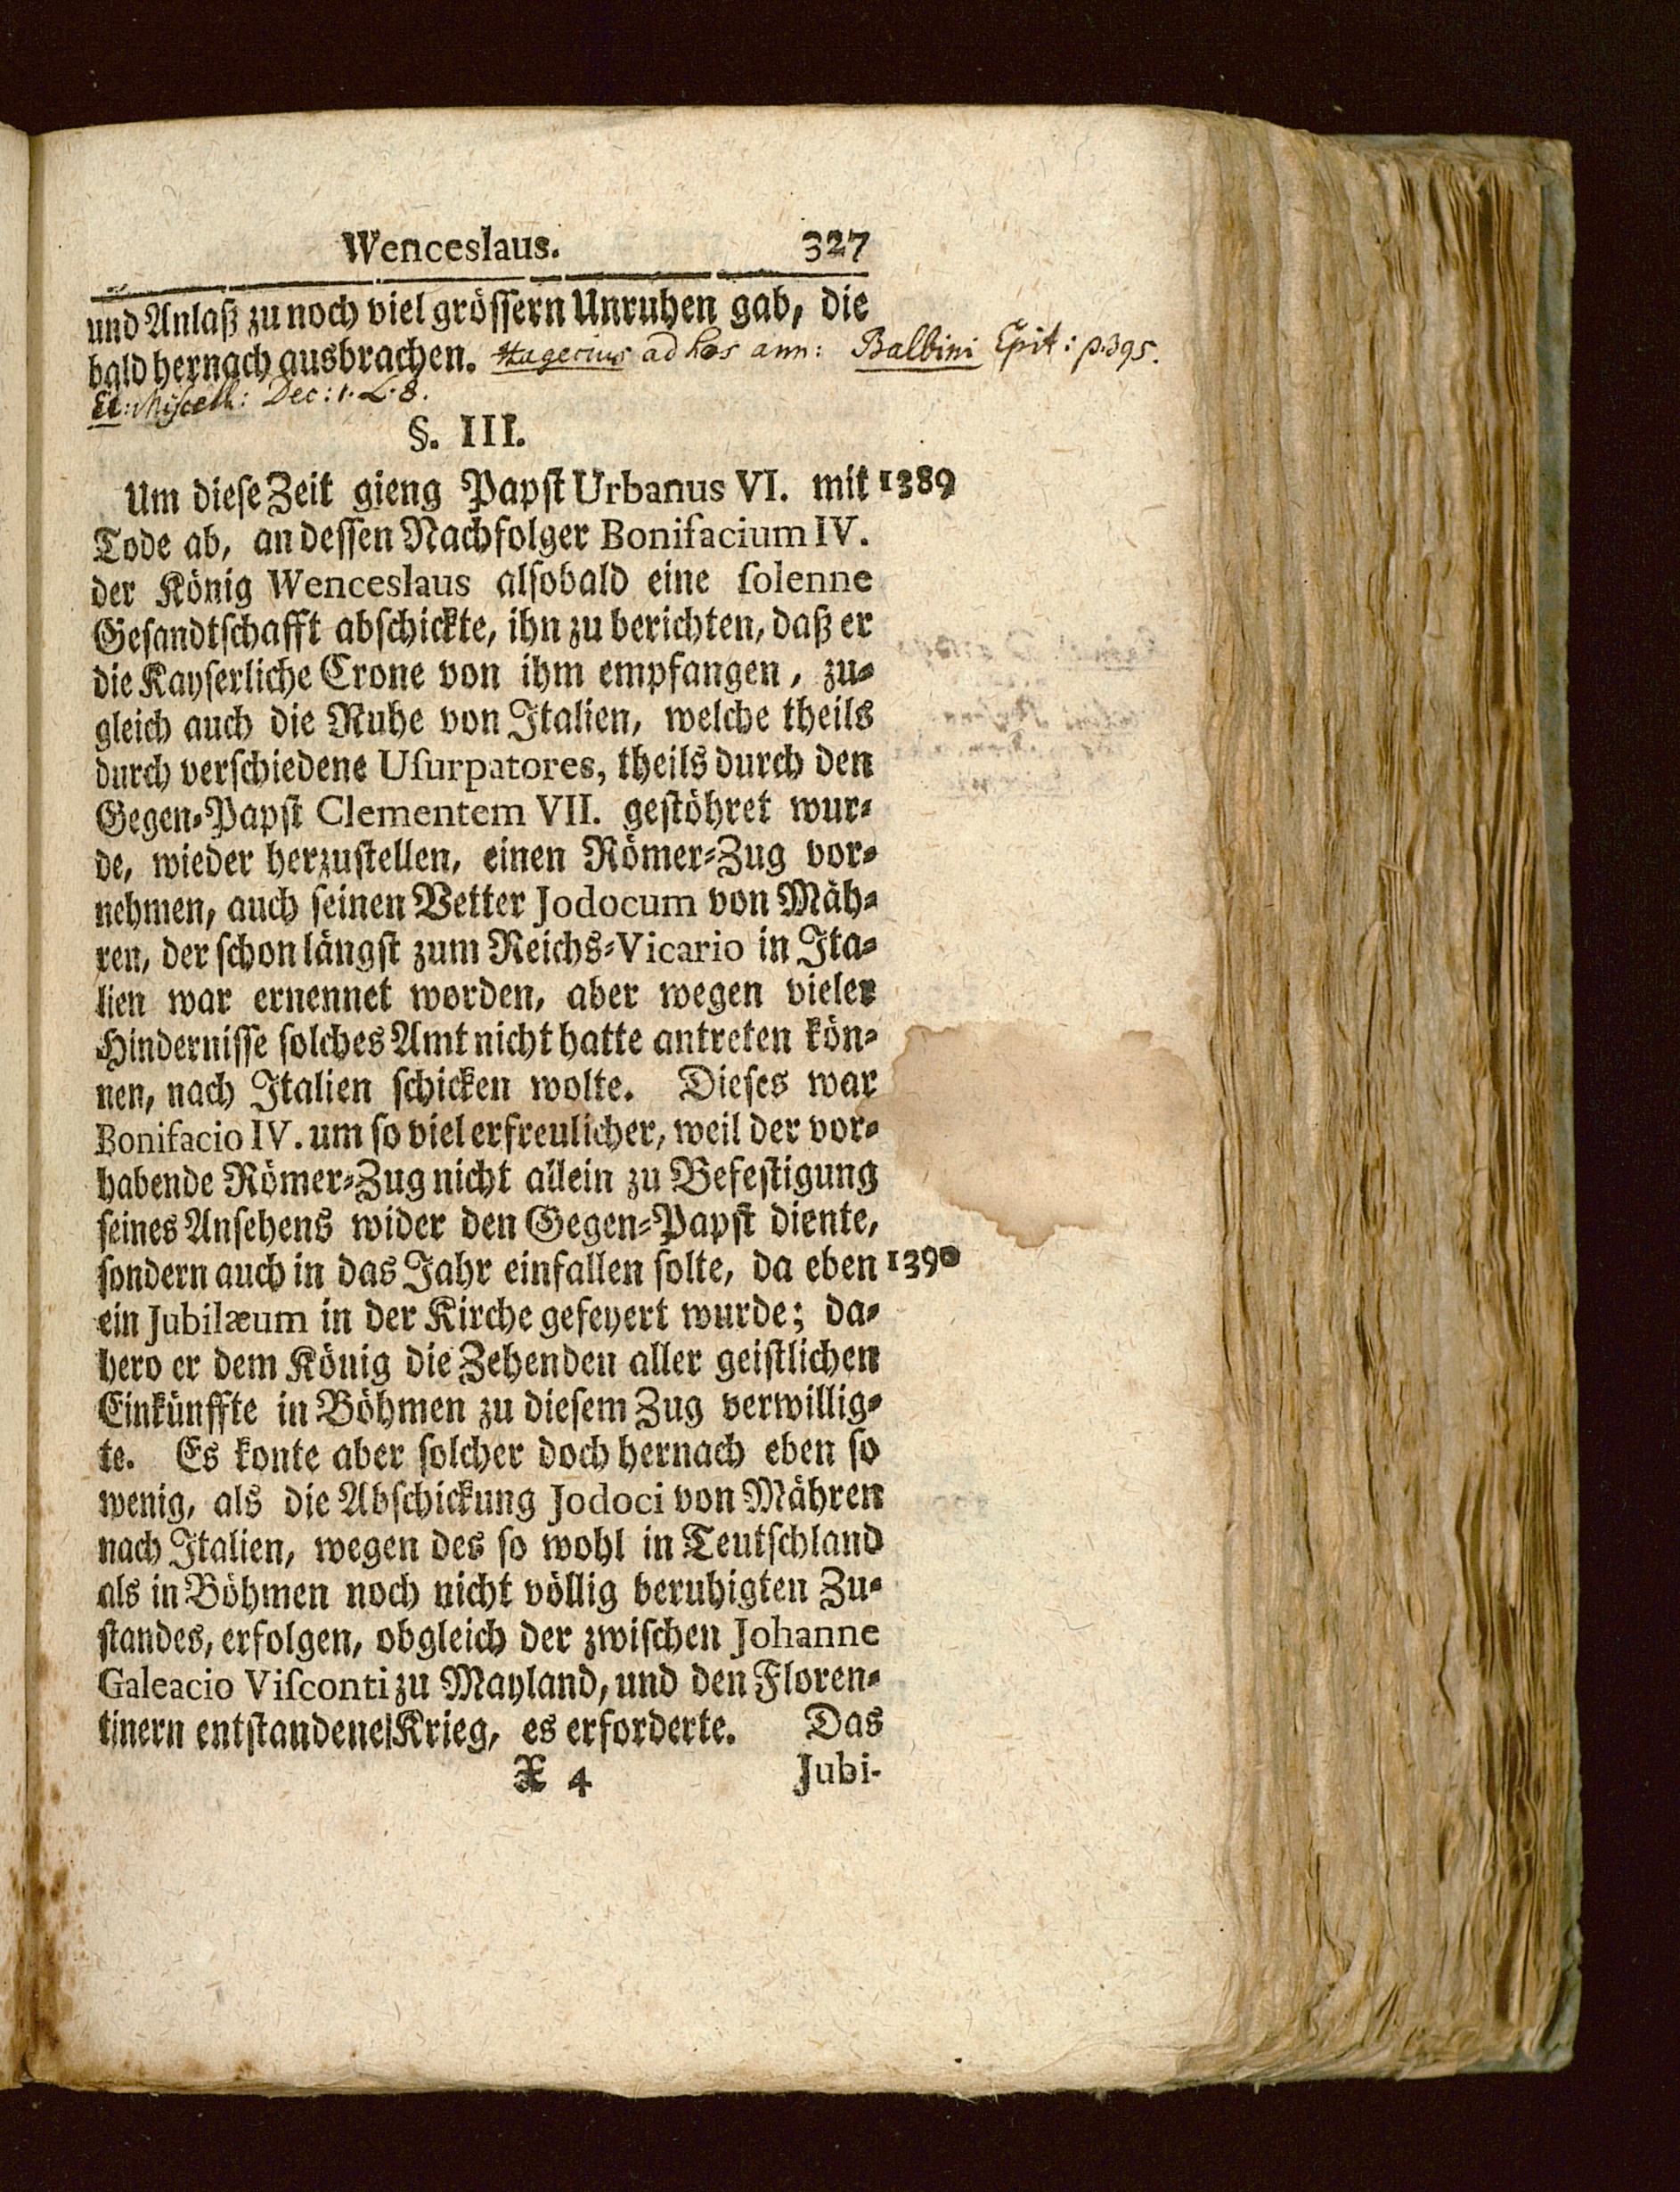 Wenceslaus. 327
und Anlaß zu noch viel grössern Unruhen gab, die
bald hernach ausbrachen. Hagecius ad hos ann: Balbini Epit: p. 395.
Et: Miscell: Dec: 1. L. 8.
§. III.
Um diese Zeit gieng Papst Urbanus VI. mit 1389
Tode ab, an dessen Nachfolger Bonifacium IV.
der König Wenceslaus alsobald eine solenne
Gesandtschafft abschickte, ihn zu berichten, daß er
die Kayserliche Crone von ihm empfangen, zu-
gleich auch die Ruhe von Italien, welche theils
durch verschiedene Usurpatores, theils durch den
Gegen-Papst Clementem VII. gestöhret wur-
de, wieder herzustellen, einen Römer-Zug vor-
nehmen, auch seinen Vetter Jodocum von Mäh-
ren, der schon längst zum Reichs-Vicario in Ita-
lien war ernennet worden, aber wegen vieler
Hindernisse solches Amt nicht hatte antreten kön-
nen, nach Italien schicken wolte. Dieses war
Bonifacio IV. um so viel erfreulicher, weil der vor-
habende Römer-Zug nicht allein zu Befestigung
seines Ansehens wider den Gegen-Papst diente,
sondern auch in das Jahr einfallen solte, da eben 1390
ein Jubilæum in der Kirche gefeyert wurde; da-
hero er dem König die Zehenden aller geistlichen
Einkünffte in Böhmen zu diesem Zug verwillig-
te. Es konte aber solcher doch hernach eben so
wenig, als die Abschickung Jodoci von Mähren
nach Italien, wegen des so wohl in Teutschland
als in Böhmen noch nicht völlig beruhigten Zu-
standes, erfolgen, obgleich der zwischen Johanne
Galeacio Visconti zu Mayland, und den Floren-
tinern entstandene Krieg, es erforderte. Das
X 4 Jubi-